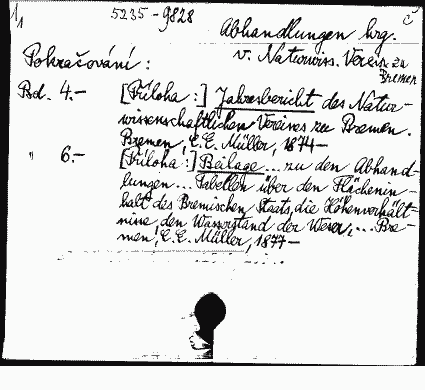 1/1 5235-9828 č
Abhandlungen hrg.
Pokračování: v. Naturwiss. Verein zu
Bremen
Bd. 4.- [Příloha:] Jahresbericht des Natur-
wissenschaftlichen Vereines zu Bremen.
Bremen, C.E. Müller, 1874-
" 6.- [Příloha:] Beilage ... zu den Abhand-
lungen ... Tabellen über den Flächenin-
halt des Bremischen Staats, die Höhenverhält-
nisse, den Wasserstand der Weser, ... Bre-
men, C.E. Müller, 1877-